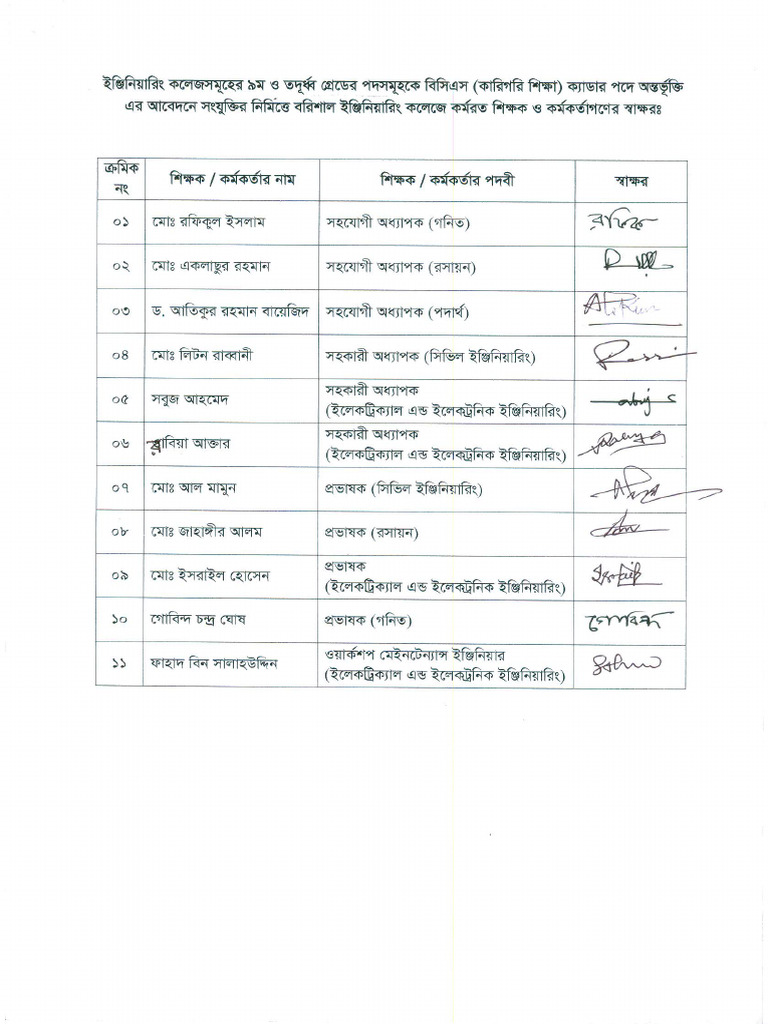 ইঞ্জিনিয়ারিং কলেজসমূহের ৯ম ও তদূর্ধ্ব গ্রেডের পদসমূহকে বিসিএস (কারিগরি শিক্ষা) ক্যাডার পদে অন্তর্ভূক্তি
এর আবেদনে সংযুক্তির নিমিত্তে বরিশাল ইঞ্জিনিয়ারিং কলেজে কর্মরত শিক্ষক ও কর্মকর্তাগণের স্বাক্ষরঃ
ক্রমিক নং শিক্ষক / কর্মকর্তার নাম শিক্ষক / কর্মকর্তার পদবী স্বাক্ষর
০১ মোঃ রফিকুল ইসলাম সহযোগী অধ্যাপক (গনিত)
০২ মোঃ একলাছুর রহমান সহযোগী অধ্যাপক (রসায়ন)
০৩ ড. আতিকুর রহমান বায়েজিদ সহযোগী অধ্যাপক (পদার্থ)
০৪ মোঃ লিটন রাব্বানী সহকারী অধ্যাপক (সিভিল ইঞ্জিনিয়ারিং)
০৫ সবুজ আহমেদ সহকারী অধ্যাপক
(ইলেকট্রিক্যাল এন্ড ইলেকট্রনিক ইঞ্জিনিয়ারিং)
০৬ রাবিয়া আক্তার সহকারী অধ্যাপক
(ইলেকট্রিক্যাল এন্ড ইলেকট্রনিক ইঞ্জিনিয়ারিং)
০৭ মোঃ আল মামুন প্রভাষক (সিভিল ইঞ্জিনিয়ারিং)
০৮ মোঃ জাহাঙ্গীর আলম প্রভাষক (রসায়ন)
০৯ মোঃ ইসরাইল হোসেন প্রভাষক
(ইলেকট্রিক্যাল এন্ড ইলেকট্রনিক ইঞ্জিনিয়ারিং)
১০ গোবিন্দ চন্দ্র ঘোষ প্রভাষক (গনিত) গোবিন্দ
১১ ফাহাদ বিন সালাহউদ্দিন ওয়ার্কশপ মেইনটেন্যান্স ইঞ্জিনিয়ার
(ইলেকট্রিক্যাল এন্ড ইলেকট্রনিক ইঞ্জিনিয়ারিং)